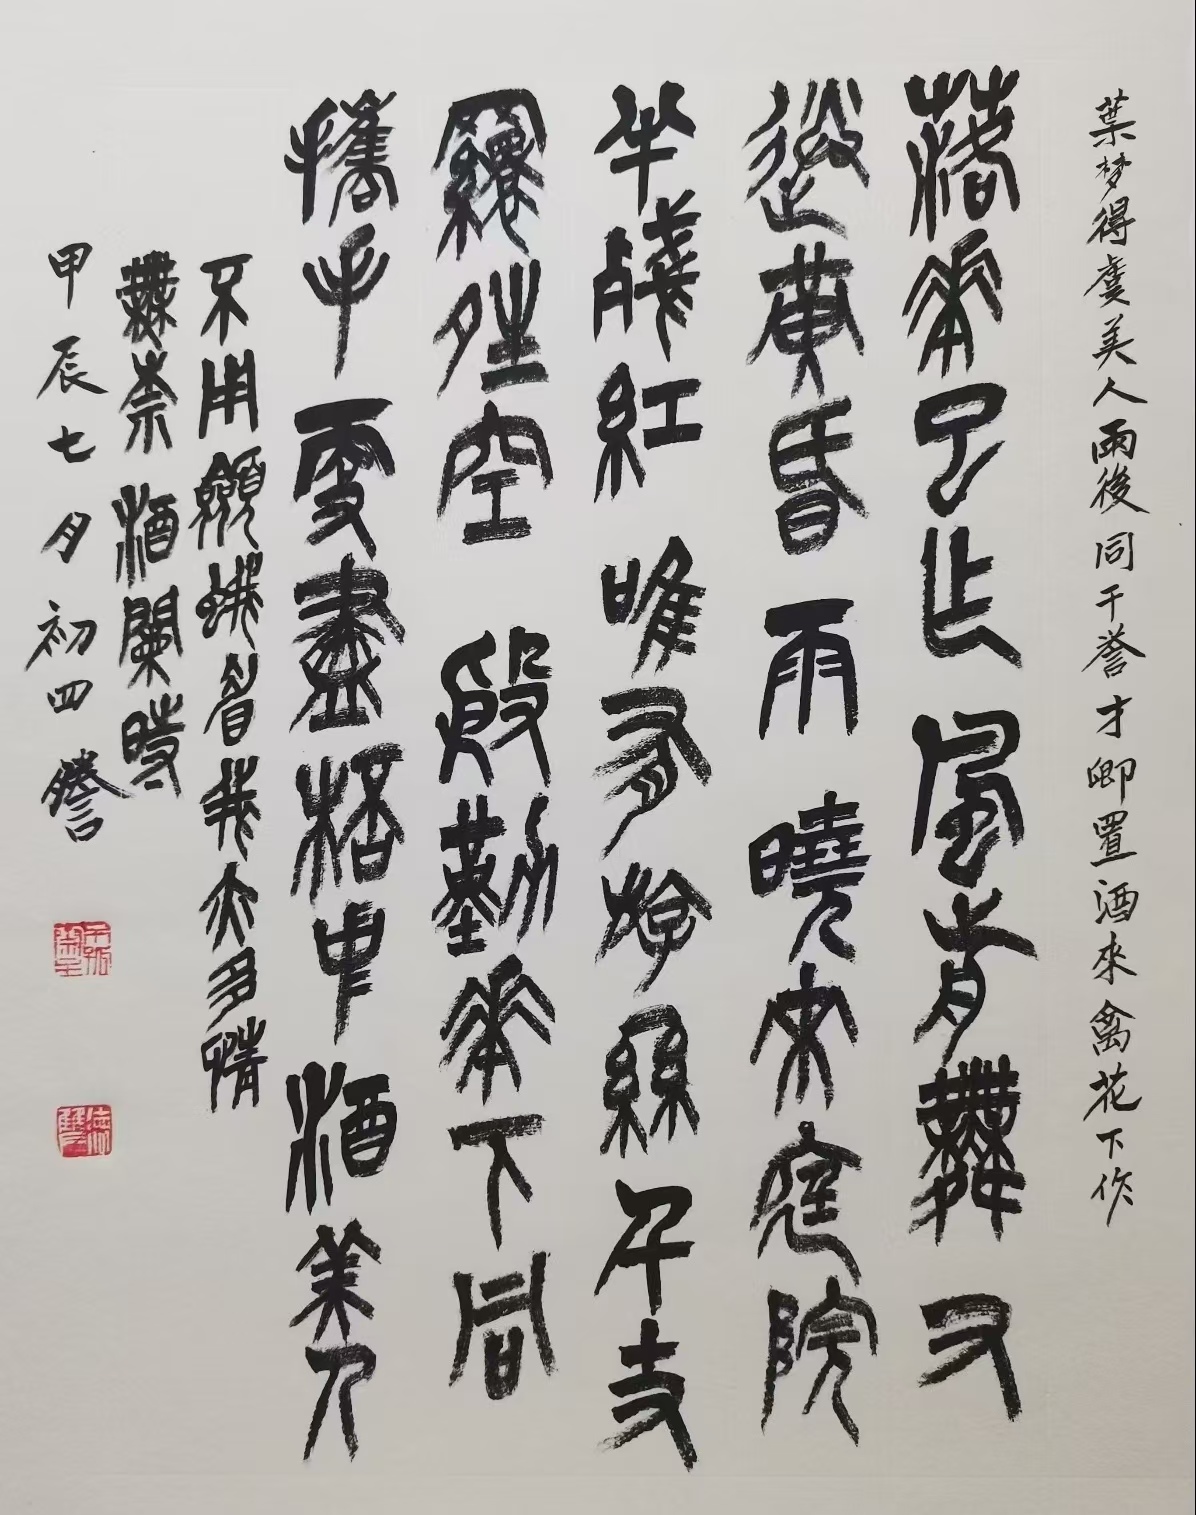 葉梦得虞美人雨後同干誉才卿置酒來禽花下作
落華已作風前舞又
送黄昏雨曉來庭院
半殘紅唯有游絲千丈
羂晴空殷勤華下同
攜手更盡桮中酒美人
不用斂蛾眉我亦多情
無柰酒闌時
甲辰七月初四